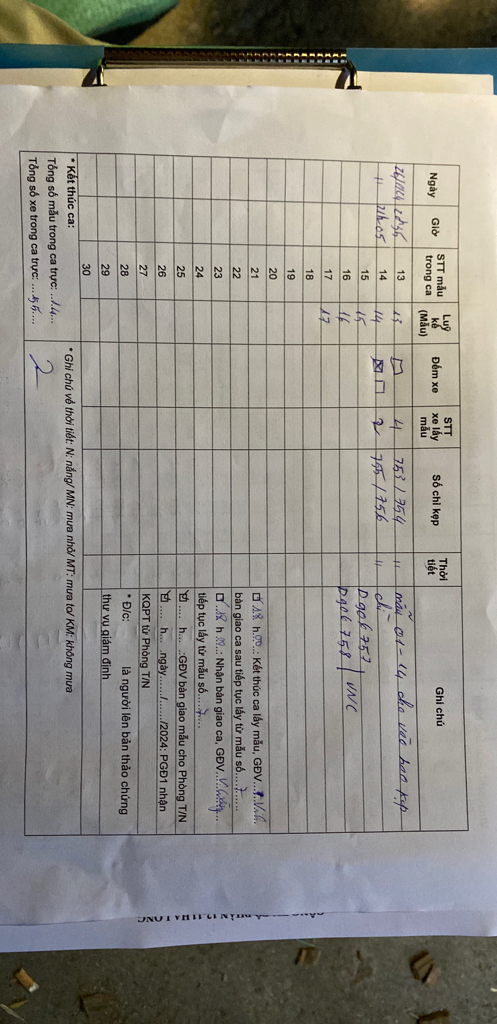 Ngày Giờ STT mẫu trong ca Luỹ kế (Mẫu) Đếm xe STT xe lấy mẫu Số chì kẹp Thời tiết Ghi chú
13 13 4 753/754 " mẫu 01-14 cho vào bao kẹp
" 21h05 14 14 2 755/756 " chì
15 15 D906757
16 16 D906758 VNC
17 17
18
19
20
21 18 h 00: Kết thúc ca lấy mẫu, GĐV
22 bàn giao ca sau tiếp tục lấy từ mẫu số...7...
23 18 h: Nhận bàn giao ca, GĐV
24 tiếp tục lấy từ mẫu số...7...
25 ..... h... .:GĐV bàn giao mẫu cho Phòng T/N
26 ..... h... .ngày....../....../2024: PGĐ1 nhận
27 KQPT từ Phòng T/N
28 * Đ/c: là người lên bản thảo chứng
29 thư vụ giám định
30
* Kết thúc ca: * Ghi chú về thời tiết: N: nắng/ MN: mưa nhỏ/ MT: mưa to/ KM: không mưa
Tổng số mẫu trong ca trực: ...14...
Tổng số xe trong ca trực: ...55....